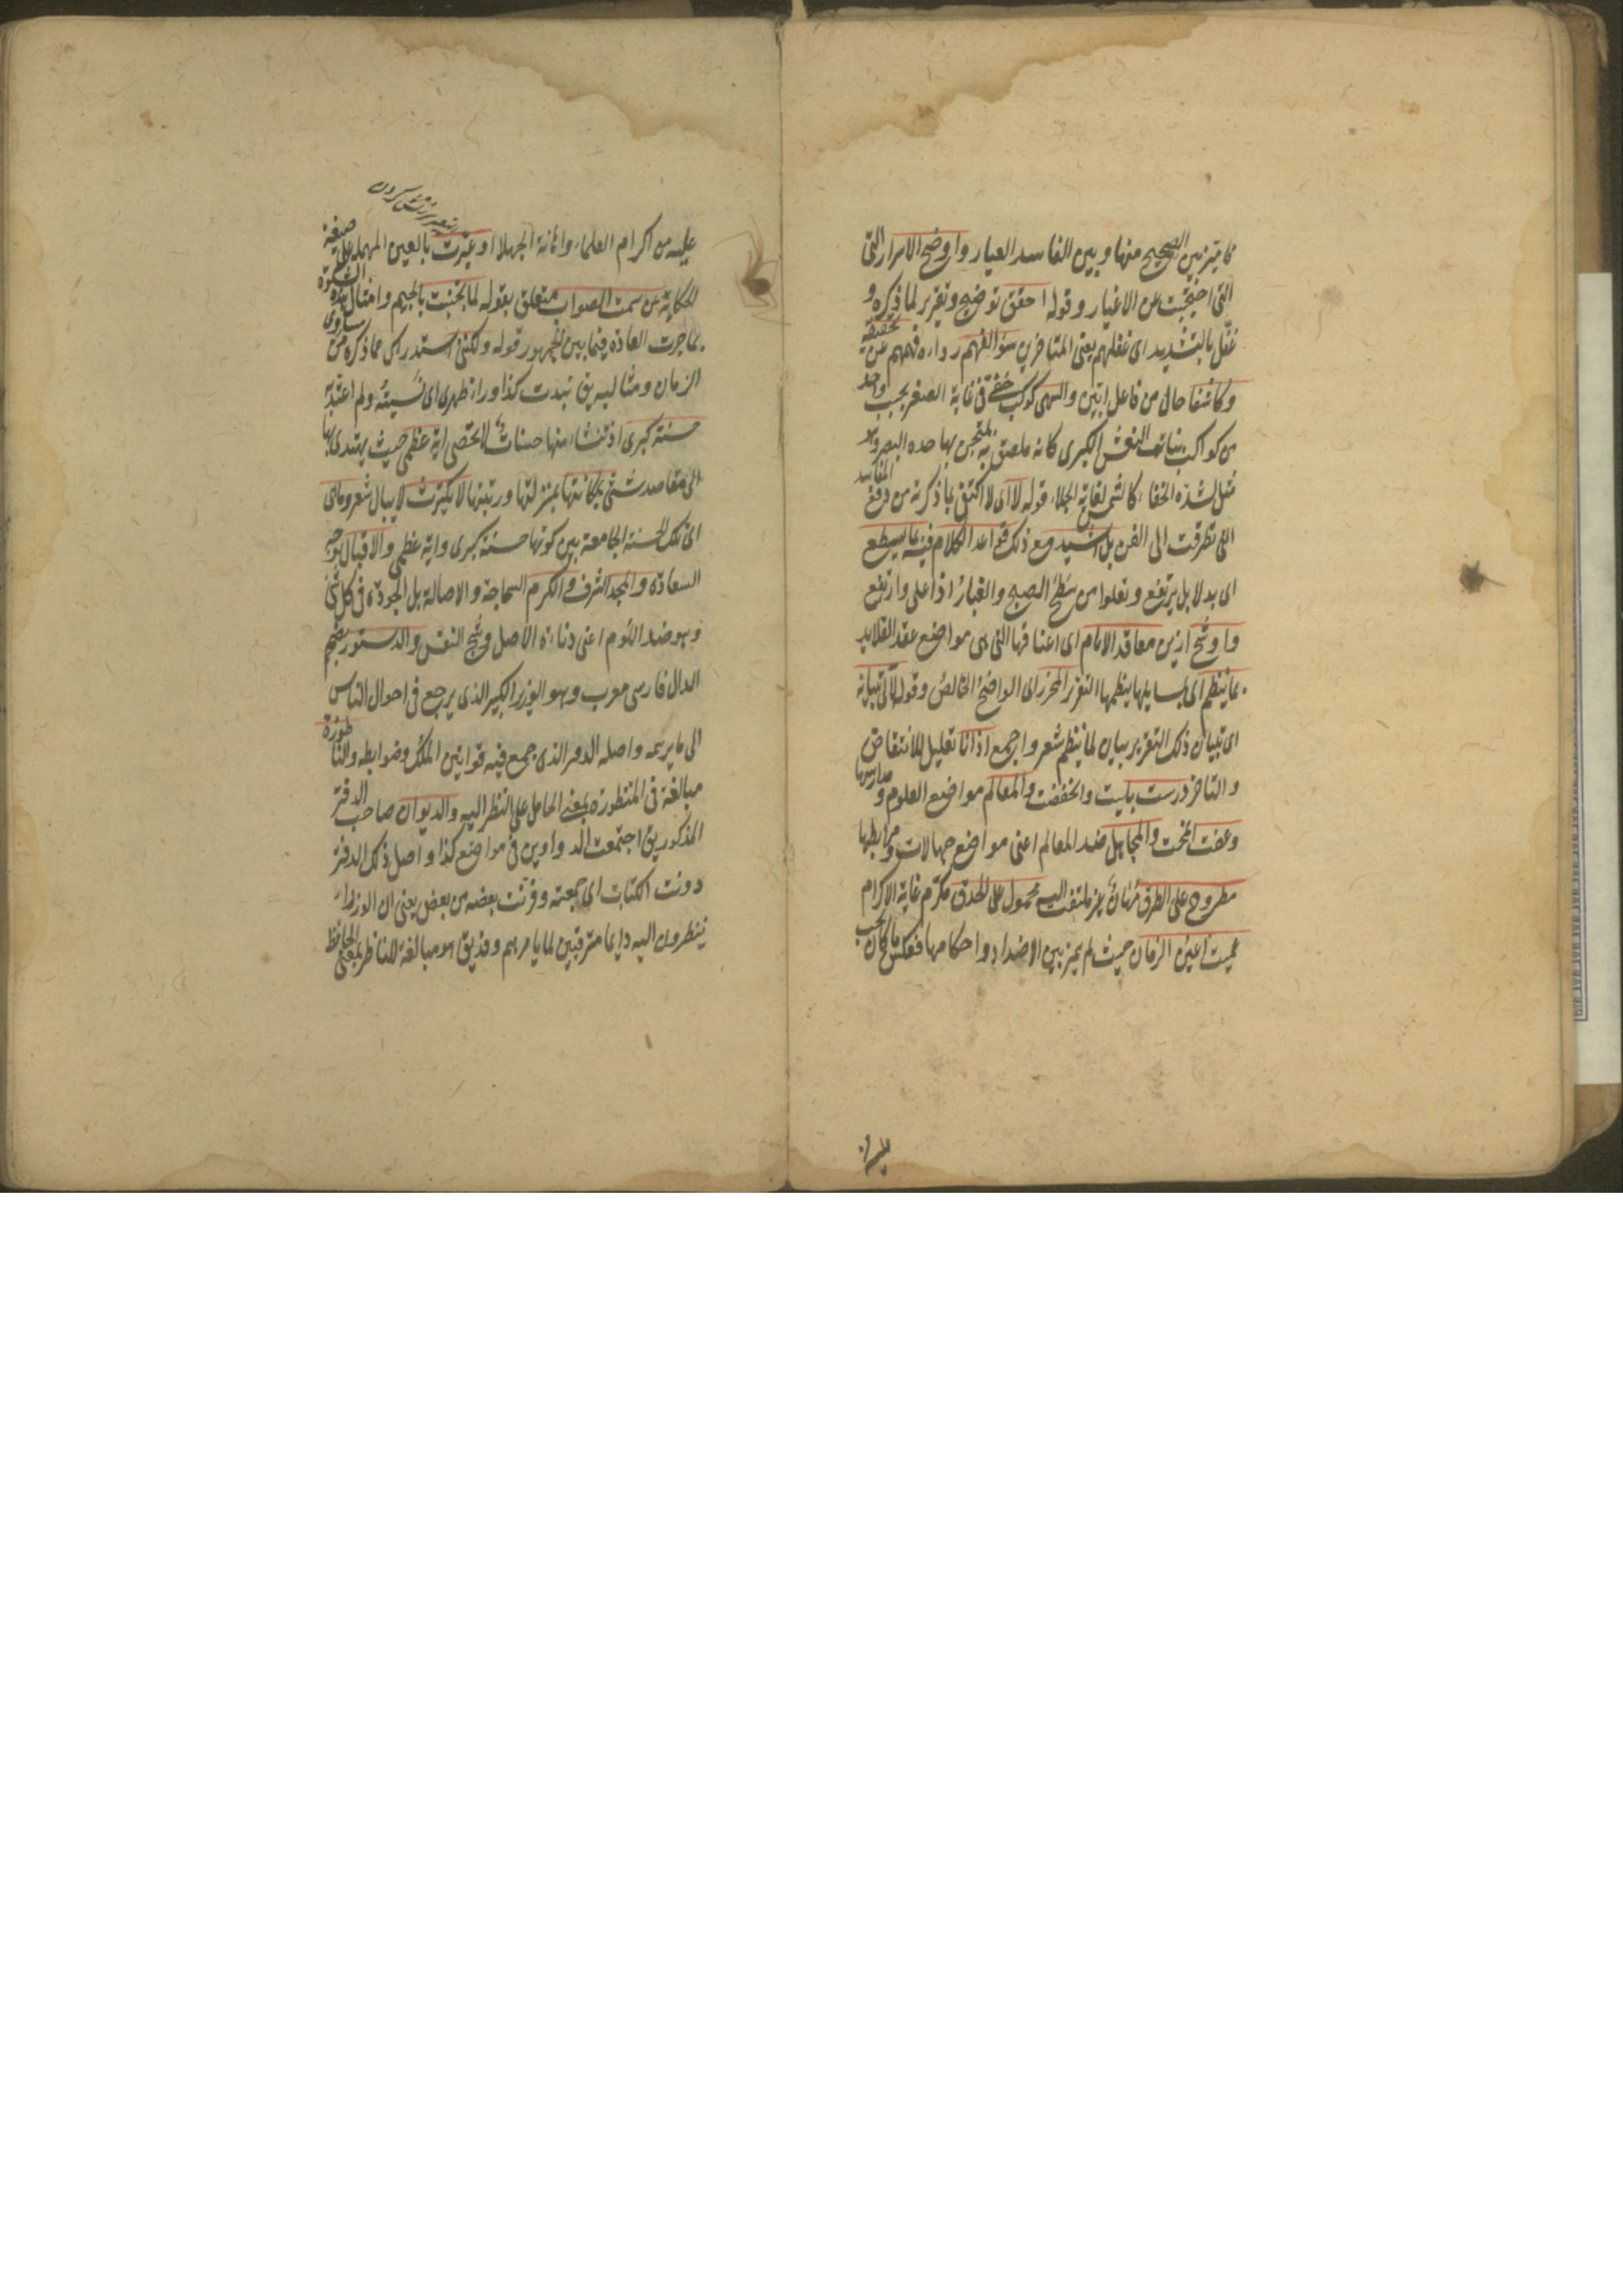 فا يتميز بين الصحيح منها وبين الفاسد العيار واوضح الاسرار التى
التى احتجبت عن الاغيار وقوله احقق توضيح وتقرير لما ذكره و
غفل بالتشديد اى غفلهم يعنى المتاخرين سوء الفهم رداءه فهمهم عن تحقيقه
وكاشفا حال من فاعل ابين والسهى كوكب خفى فى غاية الصغر بجنب واحد
من كواكب بنات النعش الكبرى كانه ملصق به يمتحن بها حدة البصر وهو
مثل لشدة الخفاء كالشمس لغاية الجلاء قوله لا اى لا اكتفى بما ذكرته من دفع المفاسد
التى تطرقت الى الفن بل اشيد مع ذلك قواعد الكلام فيه بما يسطع
اى بدلايل يرتفع وتعلوا من سطح الصبح والغبار اذا على وارتفع
واوشح ازين معاقد الانام اى اعناقها التى هى مواضع عقد القلايد
بما ينظم اى بمسايلها ينظمها التقرير المحرر اى الواضح الخالص وقوله لآلى تبيانه
اى تبيان ذلك التقرير بيان لما ينظم شعر وارجع اذ انا تعليل للانتقاض
والتاخر درست بليت وانخفضت والمعالم مواضع العلوم ومدارسها
وعفت انمحت والمجاهل ضد المعالم اعنى مواضع جهالات ومرابطها
مطروح على الطرق مهان غير ملتفت اليه محمول على الحدق مكرم غاية الاكرام
عميت اعين الزمان حيث لم يميز بين الاضداد واحكامها فعكس ما كان يجب
عليه من
عليه من اكرام العلماء واهانة الجهلاء او عيرت بالعين المهملة على صيغة
الحكاية عن سمت الصواب متعلق بقوله لما تجنبت بالجيم وامثال هذه الشكوة
بما جرت العادة فيما بين الجمهور قوله ولكننى استدراك مما ذكره من مساوى
الزمان ومثالبه يق نبذت كذا وراء ظهرى اى نسيته ولم اعتد به
حسنة كبرى اذ تنشاء منها حسنات لا تحصى اية عظمى حيث يهتدى بها
الى مقاصد شتى بمكانتها بمنزلتها ورتبتها لا يكترث لا يبال شعر وما هى
اى تلك الحسنة الجامعة بين كونها حسنة كبرى واية عظمى والاقبال توجه
السعادة والمجد الشرف والكرم السماحة والاصالة بل الجودة فى كل شئ
وهو ضد اللوم اعنى دناءة الاصل وشح النفس والدستور بضم
الدال فارسى معرب وهو الوزير الكبير الذى يرجع فى احوال الناس
الى ما يرسمه واصله الدفتر الذى جمع فيه قوانين الملك وضوابطه والناظورة
مبالغة فى المنظورة بمعنى الحامل على النظر اليه والديوان صاحب الدفتر
المذكور يق اجتمعت الدواوين فى مواضع كذا واصل ذلك الدفتر
دونت الكتاب اى جمعته وقرنت بعضه من بعض يعنى ان الوزراء
ينظرون اليه دايما مترقبين لما يامرهم وقد يق هو مبالغة للناظر بمعنى الحافظ